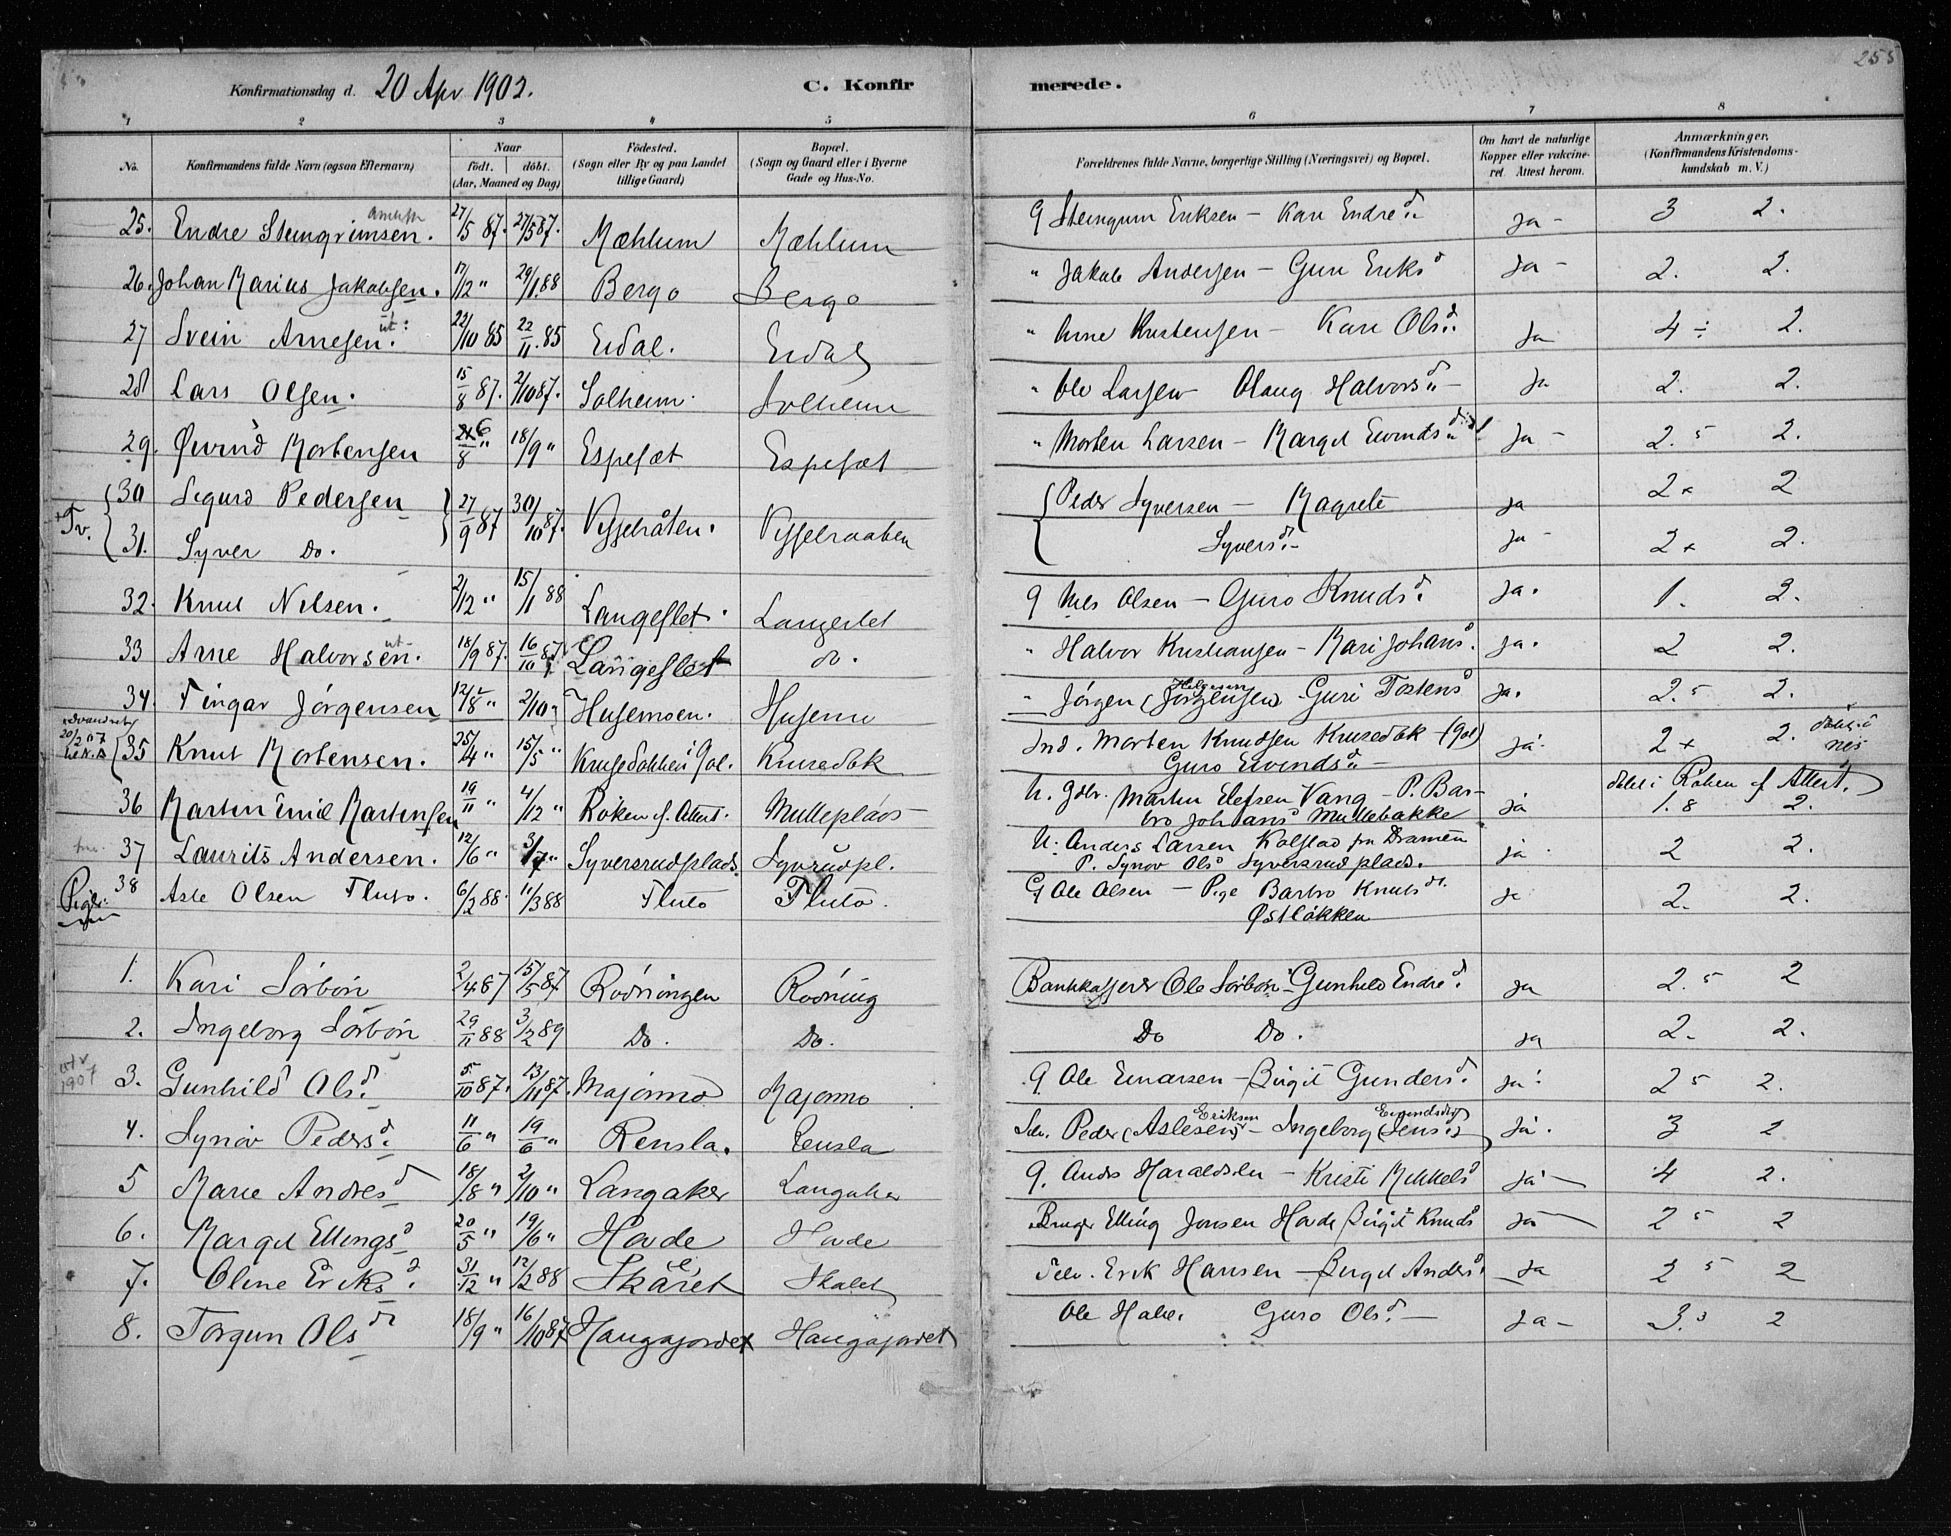 255
Konfirmationsdag d. 20 Apr 1902. C. Konfirmerede.
1 2 3 4 5 6 7 8
No. Konfirmandens fulde Navn (ogsaa Efternavn) Naar födt. döbt. (Aar, Maaned og Dag) Födested. (Sogn eller By og paa Landet tillige Gaard) Bopæl. (Sogn og Gaard eller i Byerne Gade og Hus-No. Forældrenes fulde Navne, borgerlige Stilling (Næringsvei) og Bopæl. Om havt de naturlige Kopper eller vakcineret. Attest herom. Anmærkninger. (Konfirmandens Kristendomskundskab m. V.)
25. Endre Steingrimsen. 27/5 87. 27/5 87. Mæhlum Mæhlum G Steingrim Eriksen - Kari Endresd. Ja - 3 2.
26. Johan Marius Jakobsen. 17/12 " 29/1.88 Bergo Bergo " Jakob Andersen - Guri Eriksd Ja - 2. 2.
27 Svein Arnesen. ut: 22/10 85 22/11.85 Eidal. Eidal " Arne Kristensen - Kari Olsd. Ja 4 ÷ 2.
28 Lars Olsen. 15/8 87. 2/10 87. Solheim. Solheim " Ole Larsen Olaug Halvorsd - Ja 2. 2.
29. Øivind Mortensen 26/8 " 18/9 " Espeset Espeset " Morten Larsen - Margit Eivindsd Ja - 2.5 2.
Tv. 30 Sigurd Pedersen 27/9 87 30/10 87. Visselråten. Visselraaten Peder Syversen - Magrete Ja 2 x 2
31. Syver Do. Syversd. - Ja - 2 x 2.
32. Knut Nilsen. 2/12 " 15/1 88 Langeslet. Langeslet G Nils Olsen - Guro Knudsd. Ja. 1. 2.
33 Arne Halvorsen. ut. 18/9 87. 16/10 87. Langeslet do. " Halvor Kristiansen - Mari Johansd. Ja. 2 2.
34. Fingar Jörgensen 12/8 " 2/10 " Husemoen. Husemo " Jörgen (Jörgensen) Helgesen Guri Tostensd Ja. 2.5 2.
35 Knut Mortensen. 25/4 " 15/5 " Krusedokken i Gol. Krusedok Ind. Morten Knudsen Krusedok (Gol) Ja. 2 x 2. döbt i Nes
Guro Eivindsd -
36 Martin Emil Martinsen 19/11 " 4/12 " Röken cf. Attest. Mulleplads U. Gdbr. Martin Elefsen Vang - P. Barbro Johansd Mullebakke Ja döbt i Röken cf Attest. 1.8 2.
37 Laurits Andersen. 12/6 " 3/7 " Syversrudplads. Syvrudpl. U. Anders Larsen Kolstad fra Dramen Ja 2 2.
P. Synøv Olsd Syversrudplads.
38 Asle Olsen Fluto. 6/2 88. 11/3 88 Fluto Fluto. G Ole Olsen - Pige Barbro Knutsd. Ja 2. 2.
Østløkken
Piger
1. Kari Sörbön 2/4 87 15/5 87 Rodningen Rodning Bankkasserer Ole Sörbön - Gunhild Endresd. Ja 2.5 2
2. Ingeborg Sörbön 29/11 88 3/2 89 Do. Do. Do Do. Ja 2. 2.
1907 3. Gunhild Olsd. 5/10 87. 13/11 87. Majormo Majormo G Ole Einarsen - Birgit Gundersd. Ja. 2 5 2.
4. Synöv Pedersd. 11/6 " 19/6 " Rensla. Rensla Selv. Peder (Aslesen) Eriksen - Ingeborg (Jensd.) Eivindsdtr Ja. 3 2
5 Marie Andresd 18/8 " 2/10 " Langaker Langaker G. Andr Haraldsen - Kristi Mikkelsd Ja - 4 2.
6. Margit Ellingsd 20/5 " 19/6 " Hovde Hovde Bruger Elling Jonsen Hovde Birgit Knudsd Ja 2 5 2
7. Oline Eriksd. 31/12 " 12/2 88 Skåret Skalet Selv. Erik Hansen - Birgit Andersd. Ja 2 5 2
8. Torgun Olsdr 18/9 " 16/10 87 Haugajordet Haugajordet Ole Halv. Guro Olsd. - Ja - 3.3 2